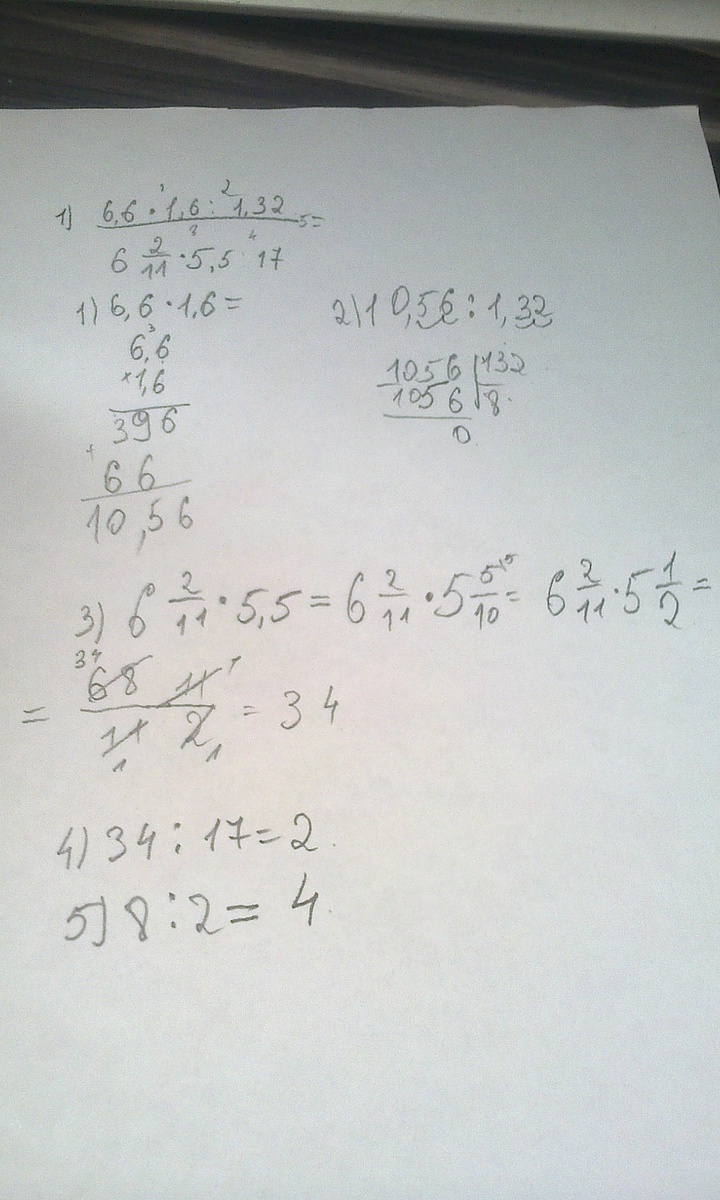 1) 6,6 · 1,6 : 1,32 =
6 2/11 · 5,5 : 17
1) 6,6 · 1,6 =
6,6
× 1,6
396
+
66
10,56
2) 10,56 : 1,32
1056 | 132
1056 | 8
0
3) 6 2/11 · 5,5 = 6 2/11 · 5 5/10 = 6 2/11 · 5 1/2 =
= 68 11 / 11 2 = 34
4) 34 : 17 = 2
5) 8 : 2 = 4